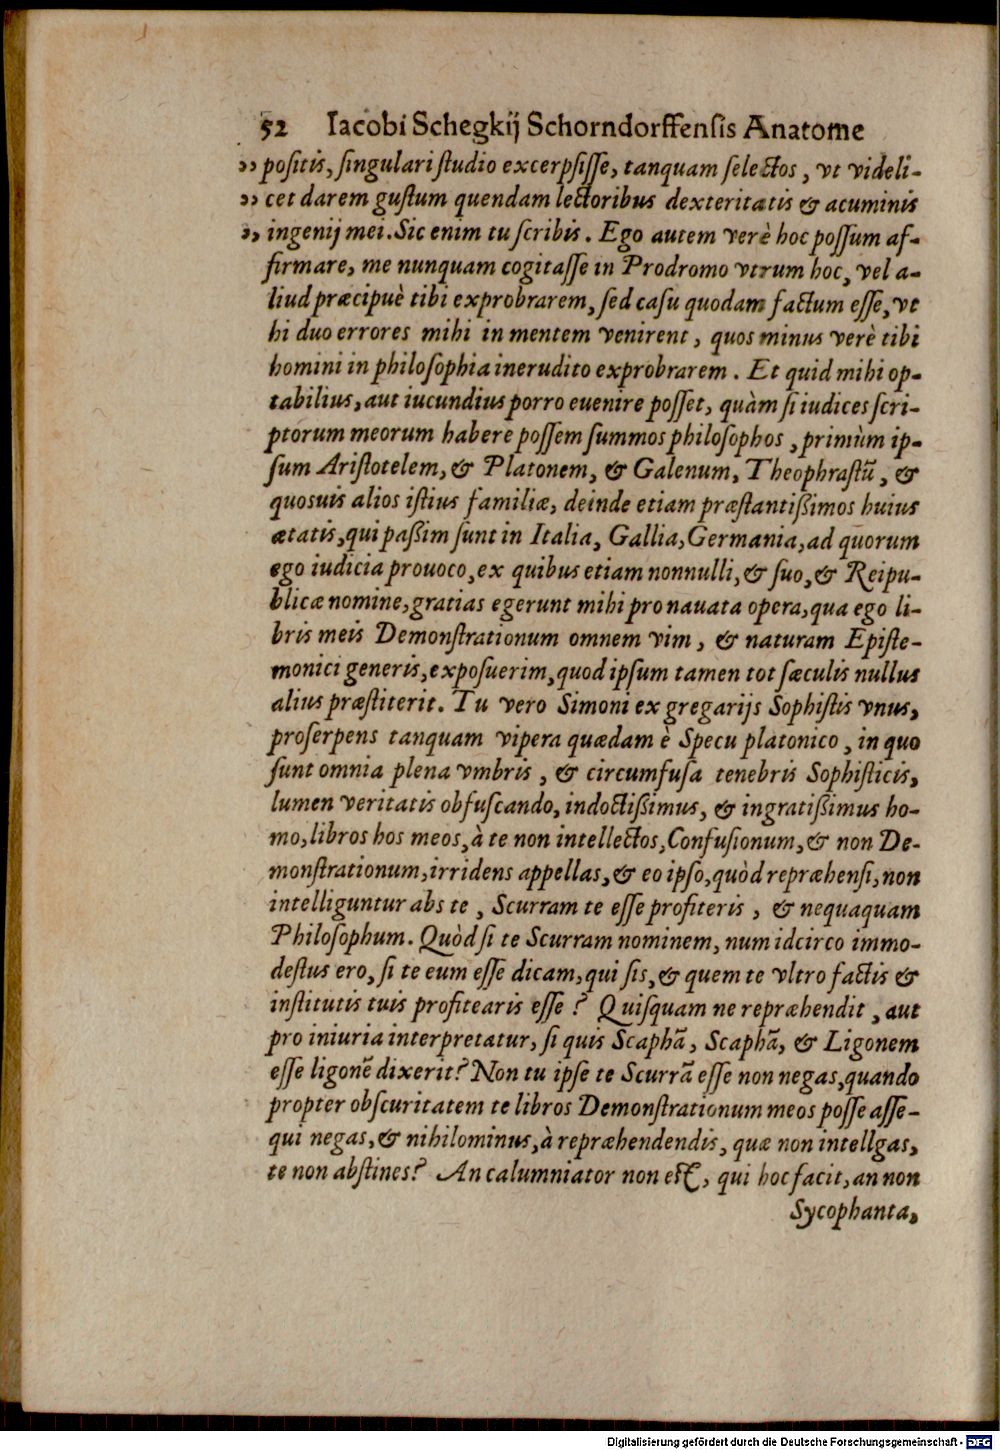 52 Iacobi Schegkij Schorndorffensis Anatome
,, positis, singulari studio excerpsisse, tanquam selectos, vt videli-
,, cet darem gustum quendam lectoribus dexteritatis & acuminis
,, ingenij mei. Sic enim tu scribis. Ego autem verè hoc possum af-
firmare, me nunquam cogitasse in Prodromo vtrum hoc, vel a-
liud præcipuè tibi exprobrarem, sed casu quodam factum esse, vt
hi duo errores mihi in mentem venirent, quos minus verè tibi
homini in philosophia inerudito exprobrarem. Et quid mihi op-
tabilius, aut iucundius porro euenire posset, quàm si iudices scri-
ptorum meorum habere possem summos philosophos, primùm ip-
sum Aristotelem, & Platonem, & Galenum, Theophrastũ, &
quosuis alios istius familiæ, deinde etiam præstantißimos huius
ætatis, qui paßim sunt in Italia, Gallia, Germania, ad quorum
ego iudicia prouoco, ex quibus etiam nonnulli, & suo, & Reipu-
blicæ nomine, gratias egerunt mihi pro nauata opera, qua ego li-
bris meis Demonstrationum omnem vim, & naturam Episte-
monici generis, exposuerim, quod ipsum tamen tot sæculis nullus
alius præstiterit. Tu vero Simoni ex gregarijs Sophistis vnus,
proserpens tanquam vipera quædam è Specu platonico, in quo
sunt omnia plena vmbris, & circumfusa tenebris Sophisticis,
lumen veritatis obfuscando, indoctißimus, & ingratißimus ho-
mo, libros hos meos, à te non intellectos, Confusionum, & non De-
monstrationum, irridens appellas, & eo ipso, quòd repræhensi, non
intelliguntur abs te, Scurram te esse profiteris, & nequaquam
Philosophum. Quòd si te Scurram nominem, num idcirco immo-
destus ero, si te eum esse dicam, qui sis, & quem te vltro factis &
institutis tuis profitearis esse? Quisquam ne repræhendit, aut
pro iniuria interpretatur, si quis Scaphã, Scaphã, & Ligonem
esse ligonẽ dixerit? Non tu ipse te Scurrã esse non negas, quando
propter obscuritatem te libros Demonstrationum meos posse asse-
qui negas, & nihilominus, à repræhendendis, quæ non intellgas,
te non abstines? An calumniator non est, qui hoc facit, an non
Sycophanta,
Digitalisierung gefördert durch die Deutsche Forschungsgemeinschaft - DFG